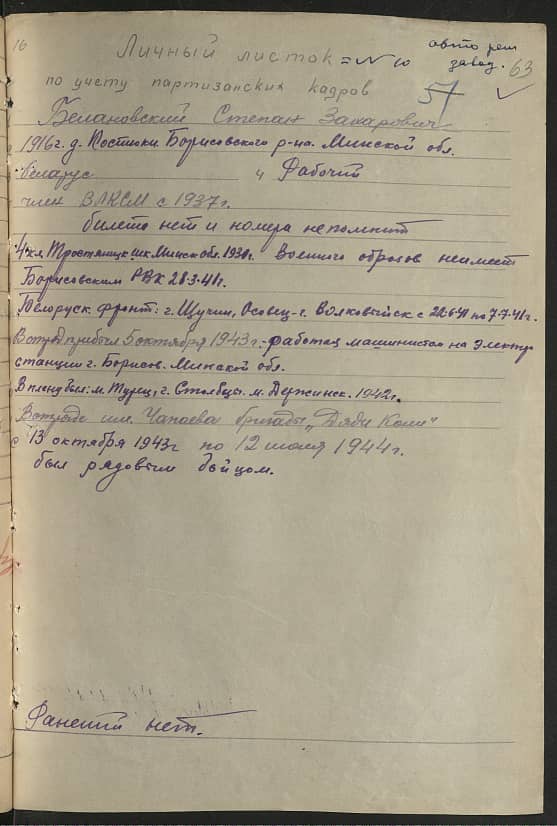 16
Личный листок = № 10
авто рем
завод. 63
по учету партизанских кадров
57
Белановский Степан Захарович
1916г. д. Костюки Борисовского р-на. Минской обл.
Беларус 4 Рабочий
член ВЛКСМ с 1937г.
билета нет и номера непомнит
4 кл Тростяницк шк Минск обл. 1930г. Военного образов неимеет
Борисовским РВК 28.3.41г.
Белорусск. фронт: г. Щучин, Осовец - г. Волковыйск с 22.6.41 по 7.7.41г.
В отряд прибыл 5 октября 1943г. - работал машинистом на электро
станции г. Борисов. Минской обл.
В плену был: м. Турец, г. Столбцы. м. Держинск. 1942г.
В отряде им. Чапаева бригады "Дяди Коли"
с 13 октября 1943г по 12 июля 1944г.
был рядовым бойцом.
Ранений нет.